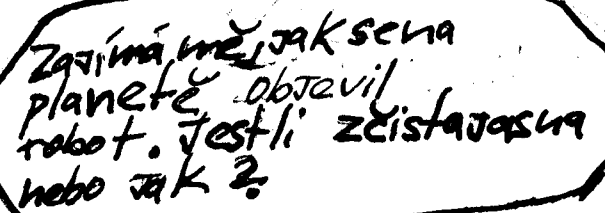 Zajímá mě, jak se na
planetě objevil
robot. Jestli zčistajasna
nebo jak?